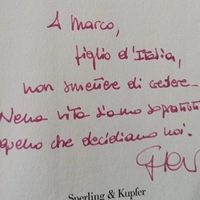 A Marco,
figlio d'Italia,
non smettere di credere...
Nella vita siamo soprattutto
quello che decidiamo noi.
Sperling & Kupfer